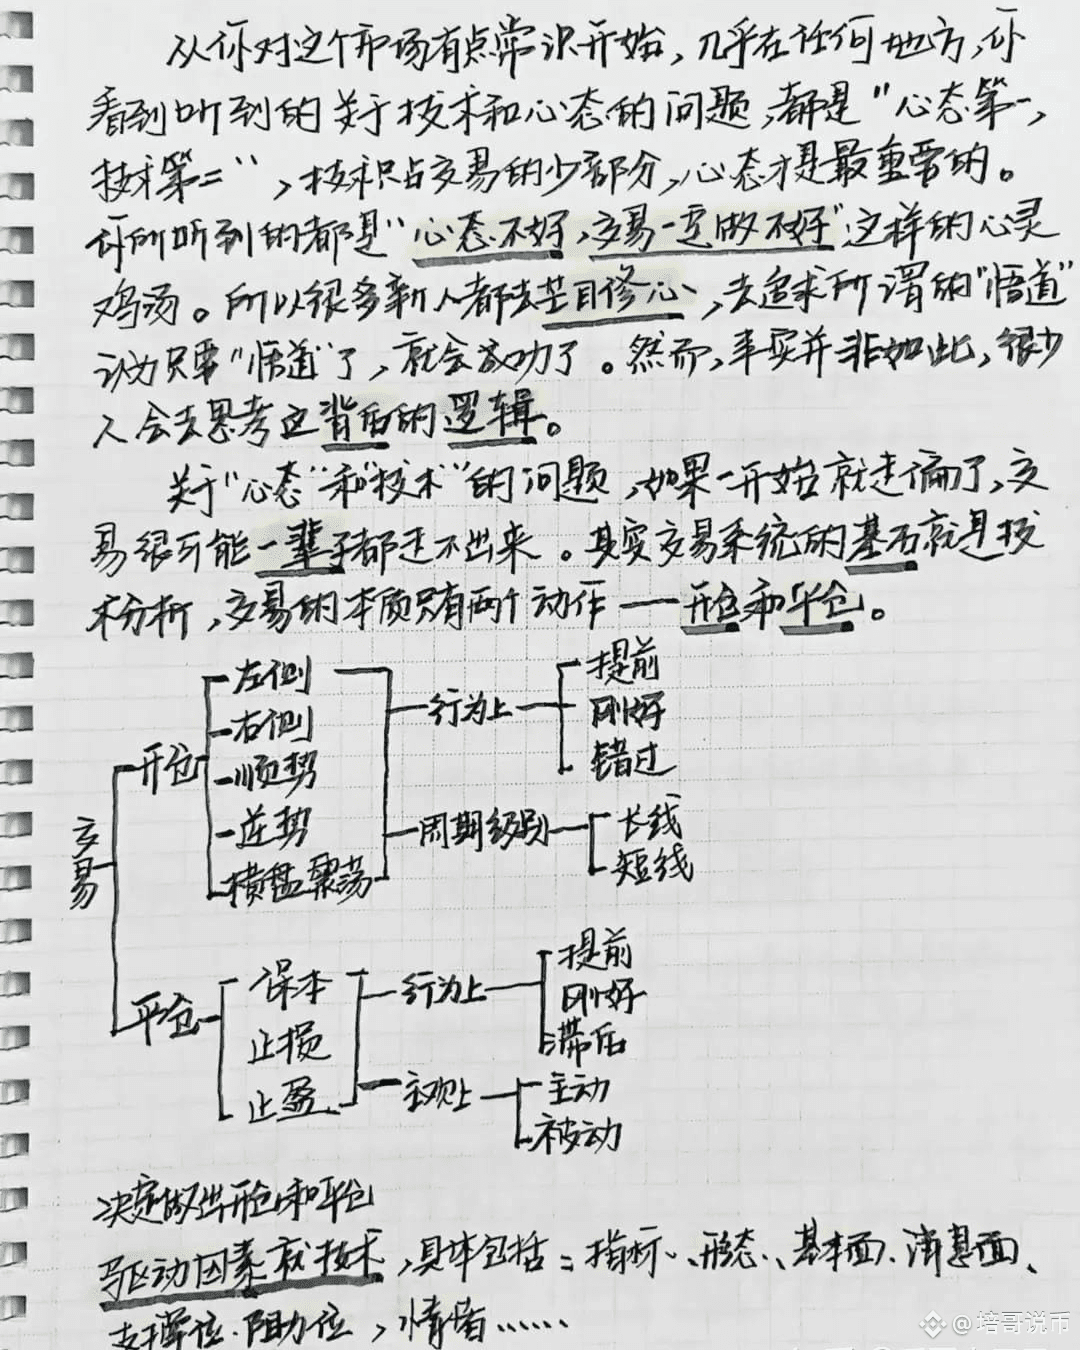 从你对这个市场有点常识开始，几乎在任何地方，你
看到听到的关于技术和心态的问题，都是“心态第一，
技术第二”，技术只占交易的少部分，心态才是最重要的。
你所听到的都是“心态不好，交易一定做不好”这样的心灵
鸡汤。所以很多新人都去盲目修心，去追求所谓的“悟道”
认为只要“悟道”了，就会成功了。然而，事实并非如此，很少
人会去思考这背后的逻辑。
关于“心态”和“技术”的问题，如果一开始就走偏了，交
易很可能一辈子都走不出来。其实交易系统的基石就是技
术分析，交易的本质只有两个动作——开仓和平仓。
交易
开仓
左侧
右侧
顺势
逆势
横盘震荡
行为上
提前
刚好
错过
周期级别
长线
短线
平仓
保本
止损
止盈
行为上
提前
刚好
滞后
主观上
主动
被动
决定做出开仓和平仓
驱动因素就技术，具体包括：指标、形态、基本面、消息面、
支撑位、阻力位，情绪……
@培哥说币